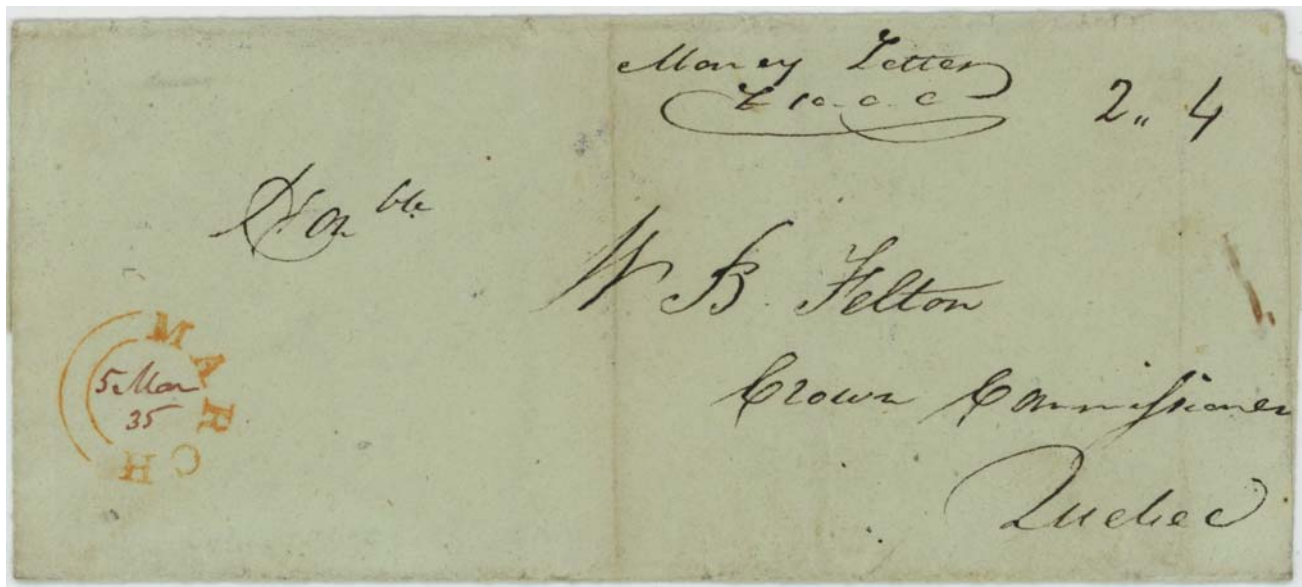 Money Letter
£10.0.0
2 〃 4
Honble
W B Felton
Crown Commissioner
Quebec
MARCH
5 Mar
35